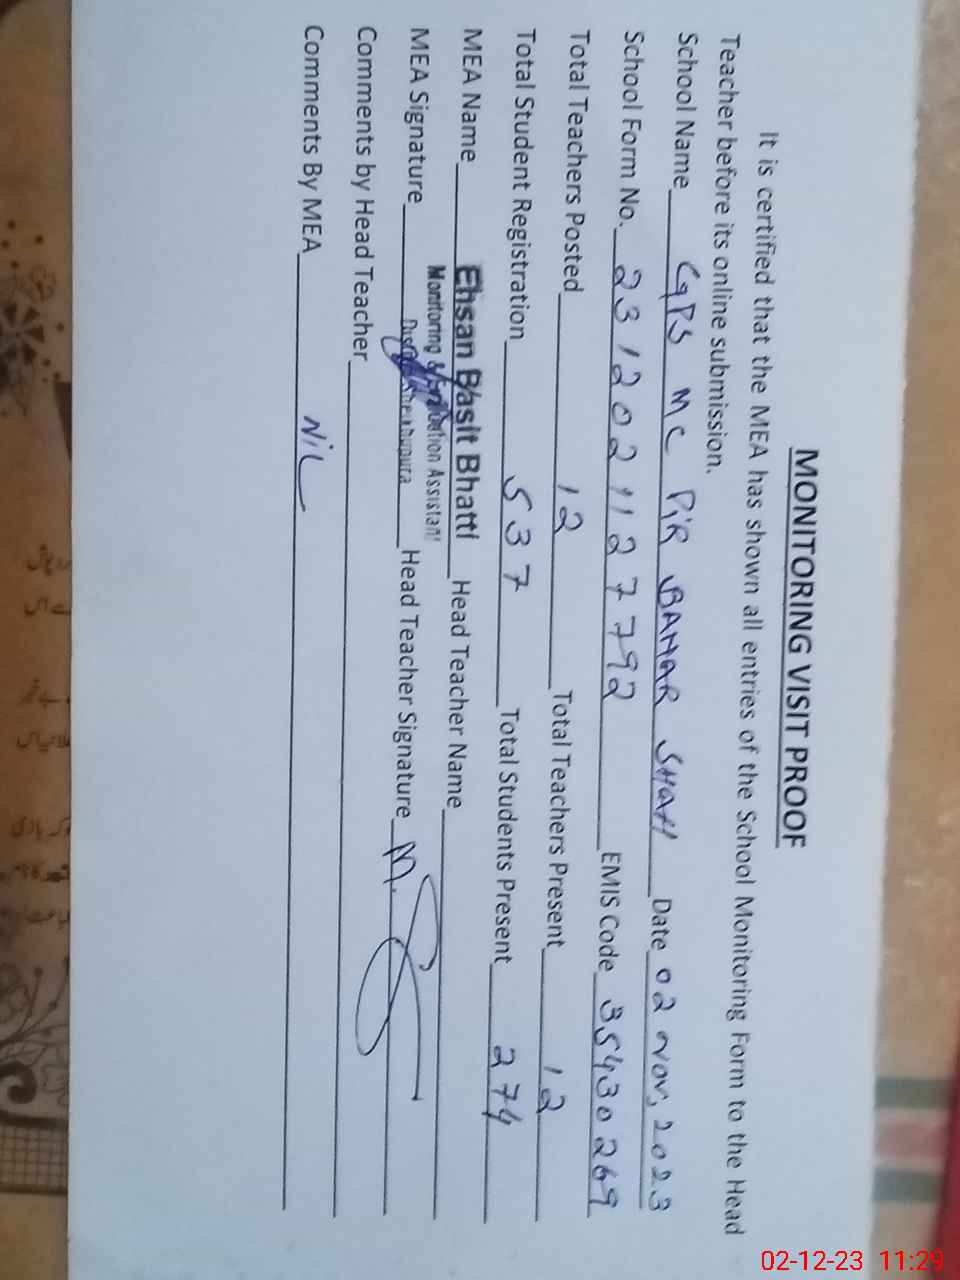 MONITORING VISIT PROOF
It is certified that the MEA has shown all entries of the School Monitoring Form to the Head
Teacher before its online submission.
School Name GPS MC PIR BAHAR SHAH Date 02 Nov, 2023
School Form No. 2312021127792 EMIS Code 35430269
Total Teachers Posted 12 Total Teachers Present 12
Total Student Registration 537 Total Students Present 274
MEA Name Ehsan Basit Bhatti Head Teacher Name
Monitoring & Evaluation Assistant
MEA Signature District Sheikhupura Head Teacher Signature M.
Comments by Head Teacher
Comments By MEA NiL
02-12-23 11:29